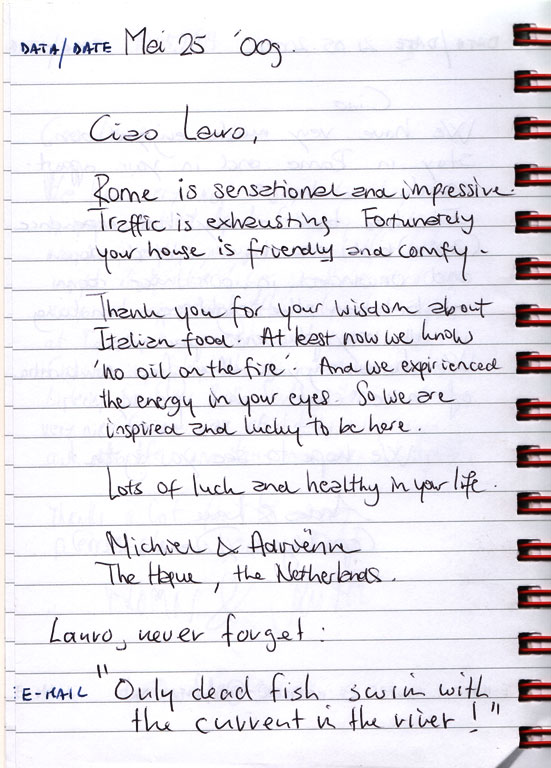 DATA/DATE Mei 25 '009.
Ciao Lauro,
Rome is sensational and impressive.
Traffic is exhausting. Fortunately
your house is friendly and comfy.
Thank you for your wisdom about
Italian food. At least now we know
'no oil on the fire'. And we expirienced
the energy in your eyes. So we are
inspired and lucky to be here.
Lots of luck and healthy in your life.
Michiel & Adriënne
The Hague, the Netherlands.
Lauro, never forget:
E-MAIL "Only dead fish swim with
the current in the river!"